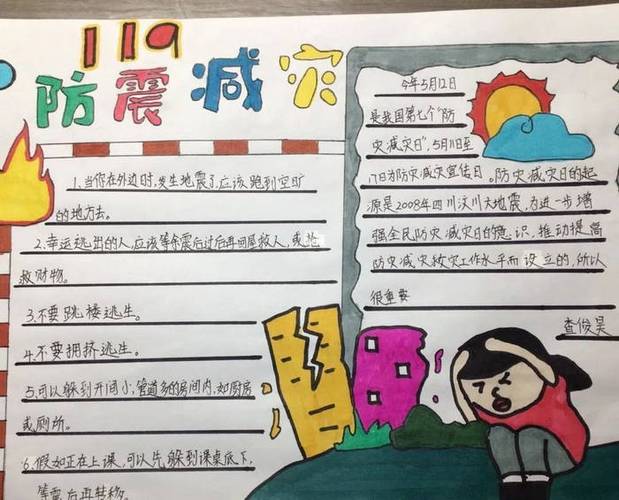 119
防震减灾
1.当你在外边时,发生地震了,应该跑到空旷
的地方去。
2.幸运逃出的人,应该等余震后过后再回屋救人,或抢
救财物。
3.不要跳楼逃生。
4.不要拥挤逃生。
5.可以躲到开间小,管道多的房间内,如厨房
或厕所。
6.假如正在上课,可以先躲到课桌底下,
等震后再转移。
今年5月12日
是我国第七个“防
灾减灾日”,5月11日至
17日为防灾减灾宣传日。防灾减灾日的起
源是2008年四川汶川大地震,为进一步增
强全民防灾减灾日的意识,推动提高
防灾减灾救灾工作水平而设立的,所以
很重要
查俊昊